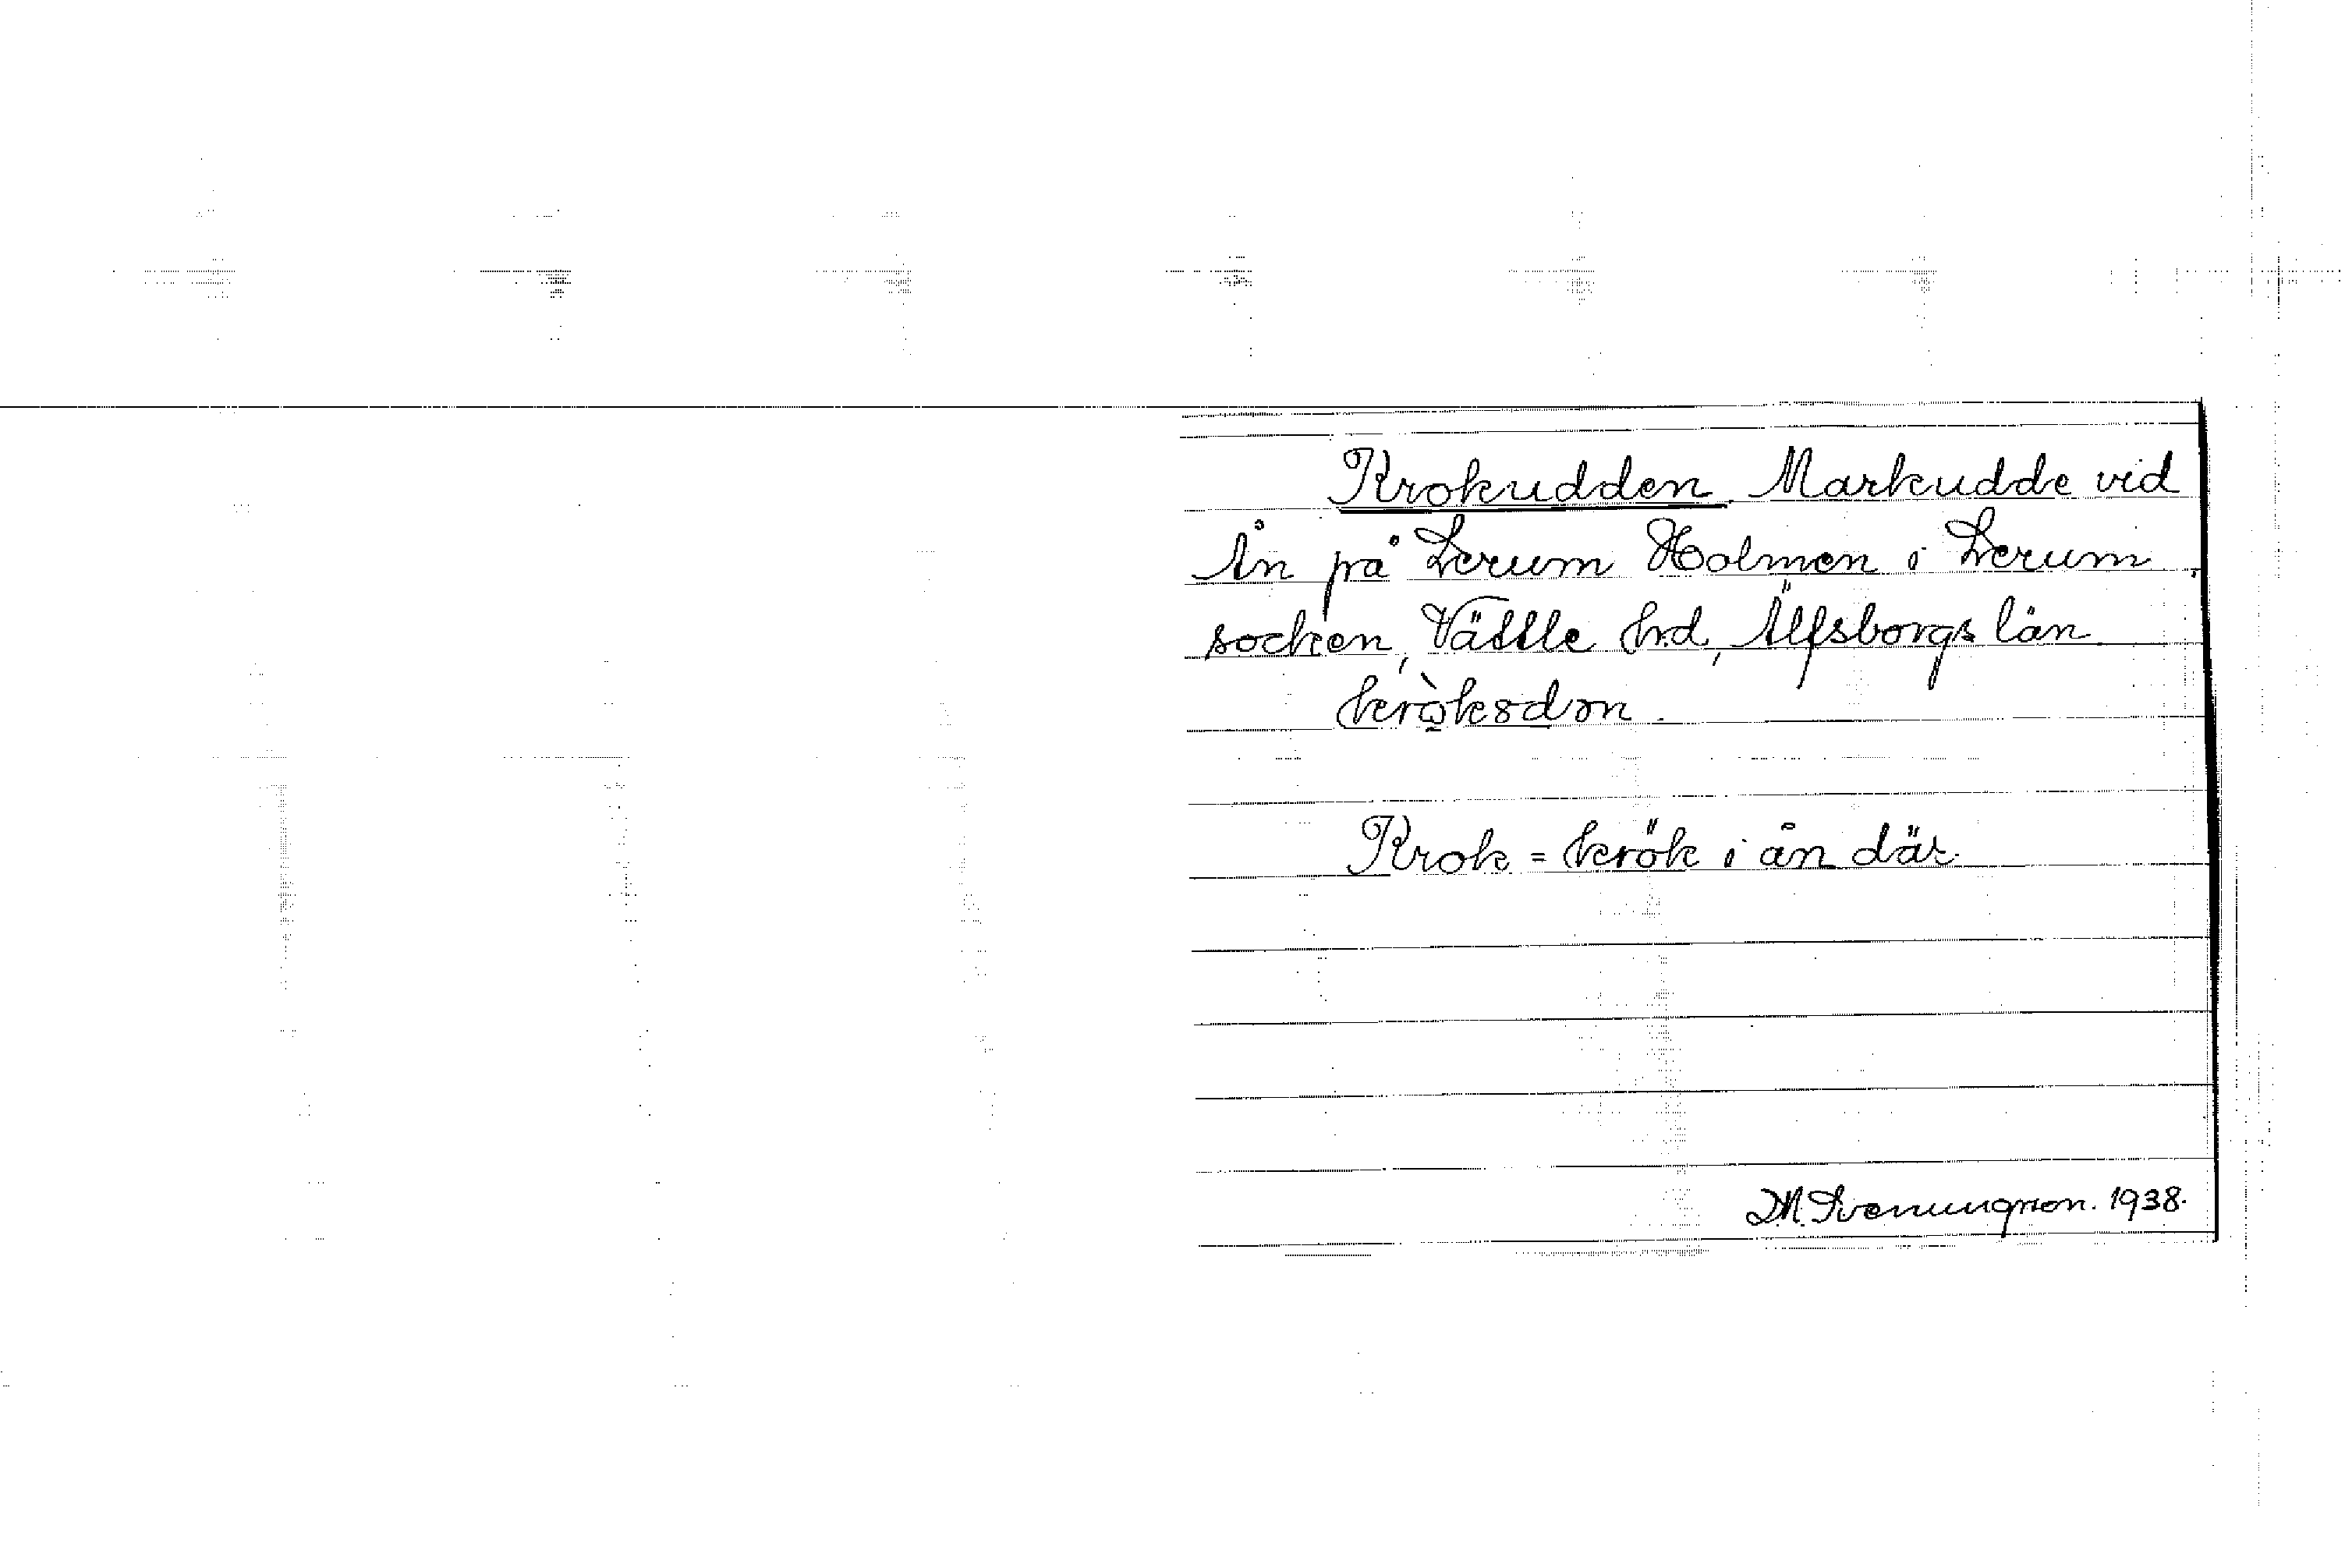 Krokudden. Markudde vid
Ån på Lerum Holmen i Lerum
socken, Vättle hrd, Älfsborgs län
kròksdon.
Krok = krök i ån där.
D.M. Svenungson. 1938.